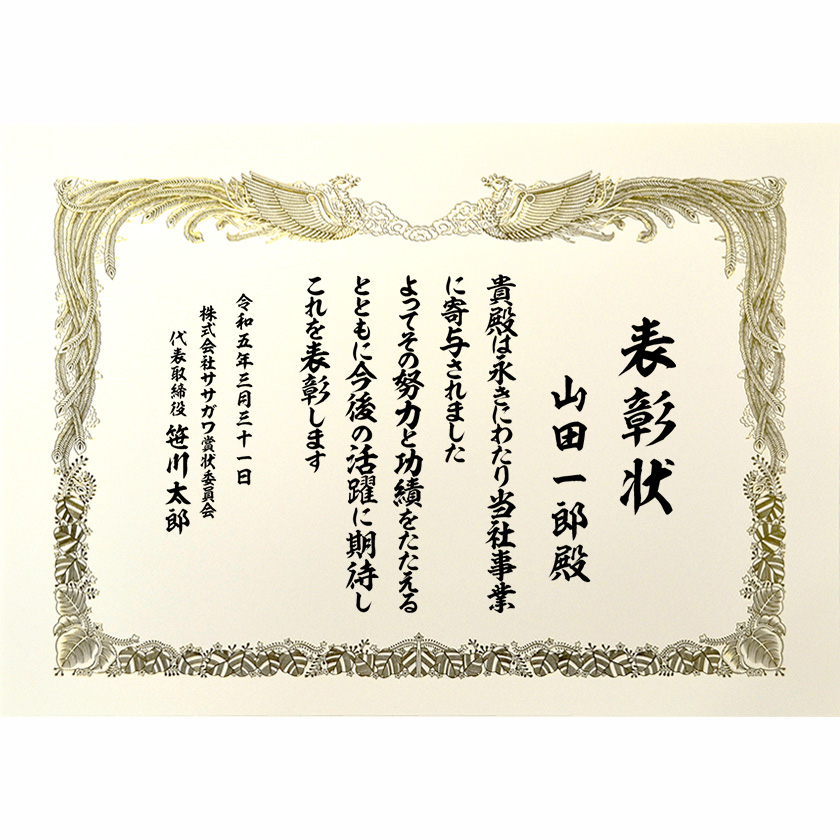 表彰状
山田一郎殿
貴殿は永きにわたり当社事業
に寄与されました
よってその努力と功績をたたえる
とともに今後の活躍に期待し
これを表彰します
令和五年三月三十一日
株式会社ササガワ賞状委員会
代表取締役 笹川太郎